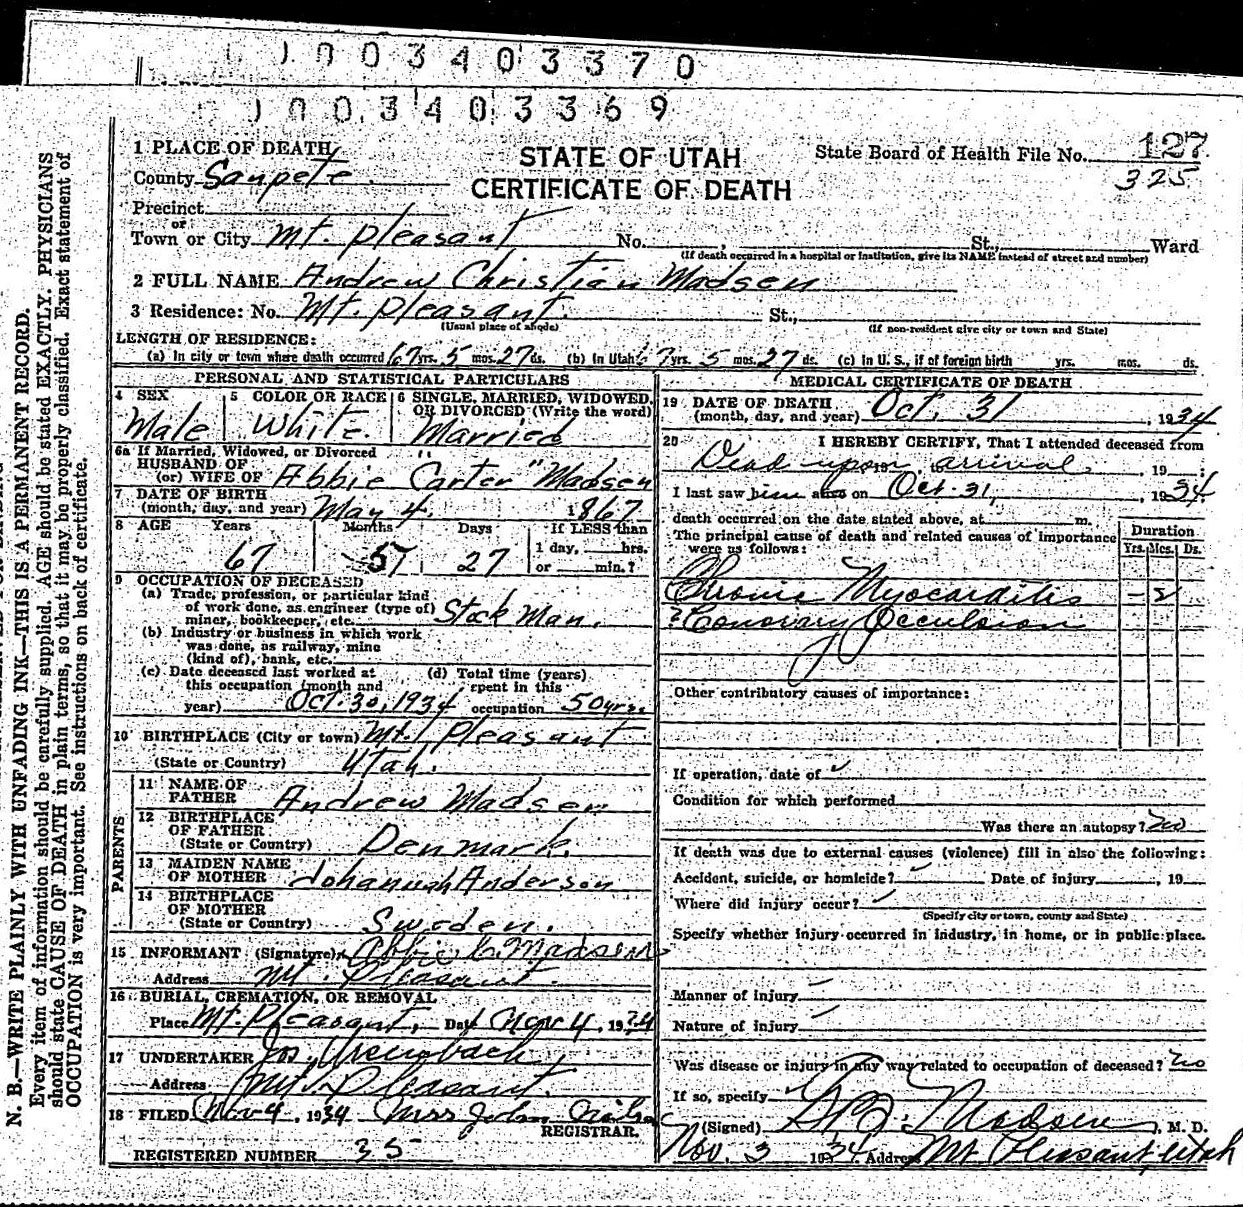 1003403370
1003403369
127
325
STATE OF UTAH
CERTIFICATE OF DEATH
State Board of Health File No.
1 PLACE OF DEATH
County Sanpete
Precinct
or
Town or City Mt. Pleasant No. , St., Ward
(If death occurred in a hospital or institution, give its NAME instead of street and number)
2 FULL NAME Andrew Christian Madsen
3 Residence: No. Mt. Pleasant. St.,
(Usual place of abode) (If non-resident give city or town and State)
LENGTH OF RESIDENCE:
(a) In city or town where death occurred 67 yrs. 5 mos. 27 ds. (b) In Utah 67 yrs. 5 mos. 27 ds. (c) In U. S., if of foreign birth yrs. mos. ds.
PERSONAL AND STATISTICAL PARTICULARS
4 SEX
Male
5 COLOR OR RACE
White.
6 SINGLE, MARRIED, WIDOWED, OR DIVORCED (Write the word)
Married
6a If Married, Widowed, or Divorced
HUSBAND OF
(or) WIFE OF Abbie Carter "Madsen
7 DATE OF BIRTH
(month, day, and year) May 4, 1867
8 AGE Years Months Days If LESS than
67 5 27 1 day, hrs.
or min.?
9 OCCUPATION OF DECEASED
(a) Trade, profession, or particular kind
of work done, as engineer (type of)
miner, bookkeeper, etc. Stock Man.
(b) Industry or business in which work
was done, as railway, mine
(kind of), bank, etc.
(c) Date deceased last worked at
this occupation (month and
year) Oct. 30, 1934
(d) Total time (years)
spent in this
occupation 50 yrs.
10 BIRTHPLACE (City or town) Mt. Pleasant
(State or Country) Utah.
PARENTS
11 NAME OF
FATHER Andrew Madsen
12 BIRTHPLACE
OF FATHER
(State or Country) Denmark.
13 MAIDEN NAME
OF MOTHER Johannah Anderson
14 BIRTHPLACE
OF MOTHER
(State or Country) Sweden.
15 INFORMANT (Signature) Abbie C. Madsen
Address Mt. Pleasant.
16 BURIAL, CREMATION, OR REMOVAL
Place Mt. Pleasant, Date Nov 4, 1934
17 UNDERTAKER Jos.
Address Mt. Pleasant.
18 FILED Nov 4, 1934 Miss John
REGISTRAR.
REGISTERED NUMBER 35
MEDICAL CERTIFICATE OF DEATH
19 DATE OF DEATH
(month, day, and year) Oct. 31, 1934
20 I HEREBY CERTIFY, That I attended deceased from
Dead upon arrival, 19 ;
I last saw him alive on Oct. 31, , 1934
death occurred on the date stated above, at m.
The principal cause of death and related causes of importance
were as follows:
Duration
Yrs. Mos. Ds.
Chronic Myocarditis - 2
? Conorary Occulsion
Other contributory causes of importance:
If operation, date of
Condition for which performed
Was there an autopsy? no
If death was due to external causes (violence) fill in also the following:
Accident, suicide, or homicide? Date of injury , 19
Where did injury occur?
(Specify city or town, county and State)
Specify whether injury occurred in industry, in home, or in public place.
Manner of injury
Nature of injury
Was disease or injury in any way related to occupation of deceased? no
If so, specify
(Signed) Madsen, M. D.
Nov. 3 1934. Address Mt Pleasant, Utah
N. B.—WRITE PLAINLY WITH UNFADING INK—THIS IS A PERMANENT RECORD.
Every item of information should be carefully supplied. AGE should be stated EXACTLY. PHYSICIANS
should state CAUSE OF DEATH in plain terms, so that it may be properly classified. Exact statement of
OCCUPATION is very important. See instructions on back of certificate.